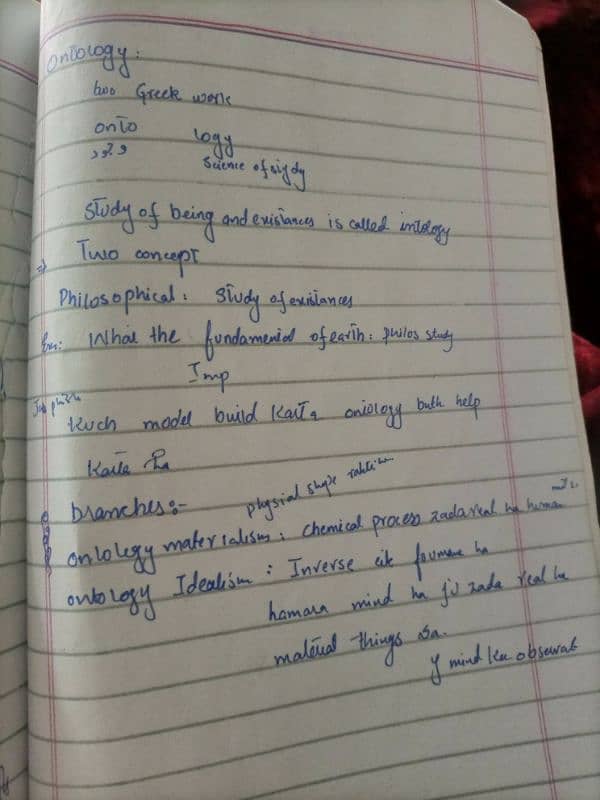 Ontology:
two Greek work
onto logy
Science of
Study of being and existances is called intology
=> Two concept
Philosophical: Study of existances
Em: What the fundamental of earth: philos study
Imp
Kuch model build Karta ontology buth help
Karta ha
branches:-
physial shape
ontology materialism: chemical process zada real ha human
ontology Idealism: Inverse ha
hamara mind ha jo zada real ha
material things sa.
y mind Ka observat